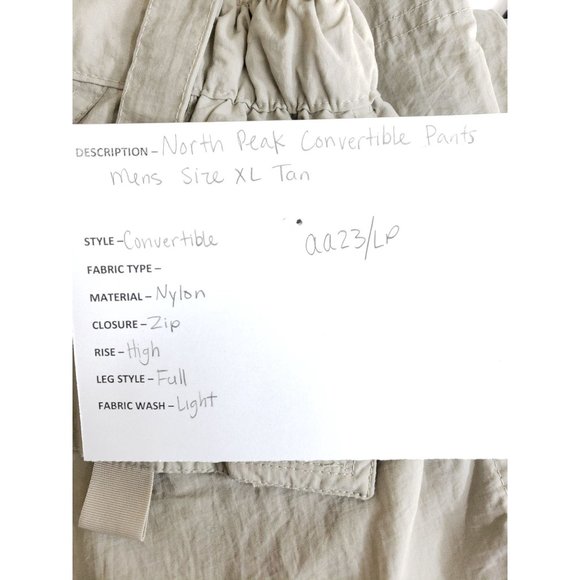 DESCRIPTION – North Peak Convertible Pants
Mens Size XL Tan
STYLE – Convertible
aa23/LP
FABRIC TYPE –
MATERIAL – Nylon
CLOSURE – Zip
RISE – High
LEG STYLE – Full
FABRIC WASH – Light